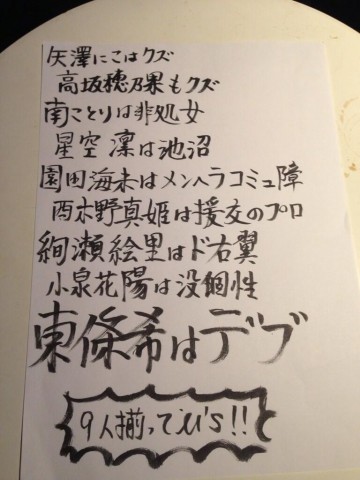 矢澤にこはクズ
高坂穂乃果もクズ
南ことりは非処女
星空凛は池沼
園田海未はメンヘラコミュ障
西木野真姫は援交のプロ
絢瀬絵里はド右翼
小泉花陽は没個性
東條希はデブ
9人揃ってμ's!!